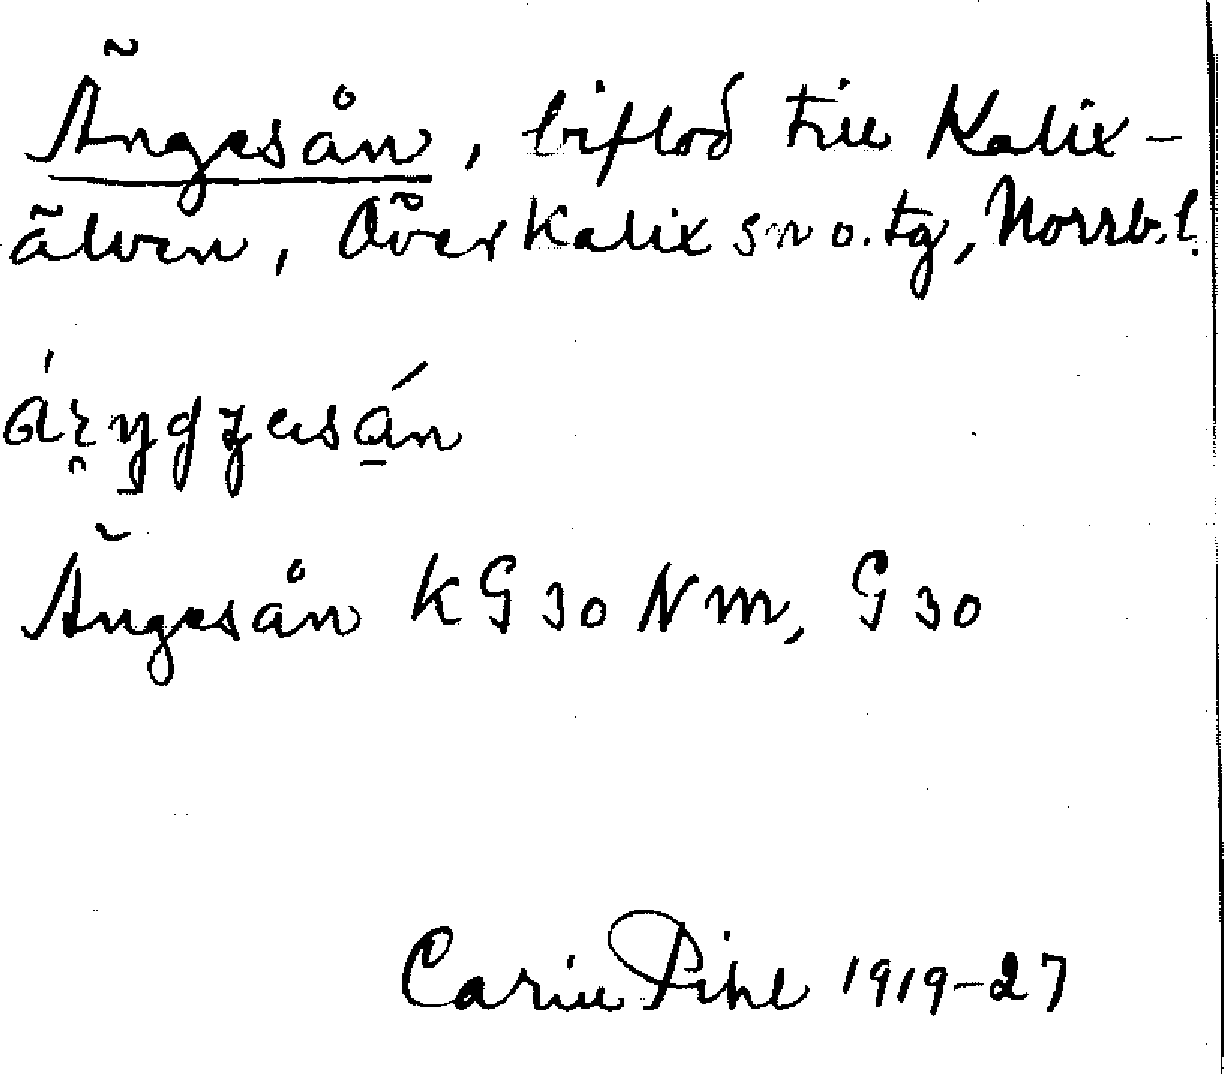 Ängesån, biflod till Kalix-
älven, Överkalix sn o. tg, Norrb.l.
Ängesån KG 30 Nm, G 30
Carin Pihl 1919-27